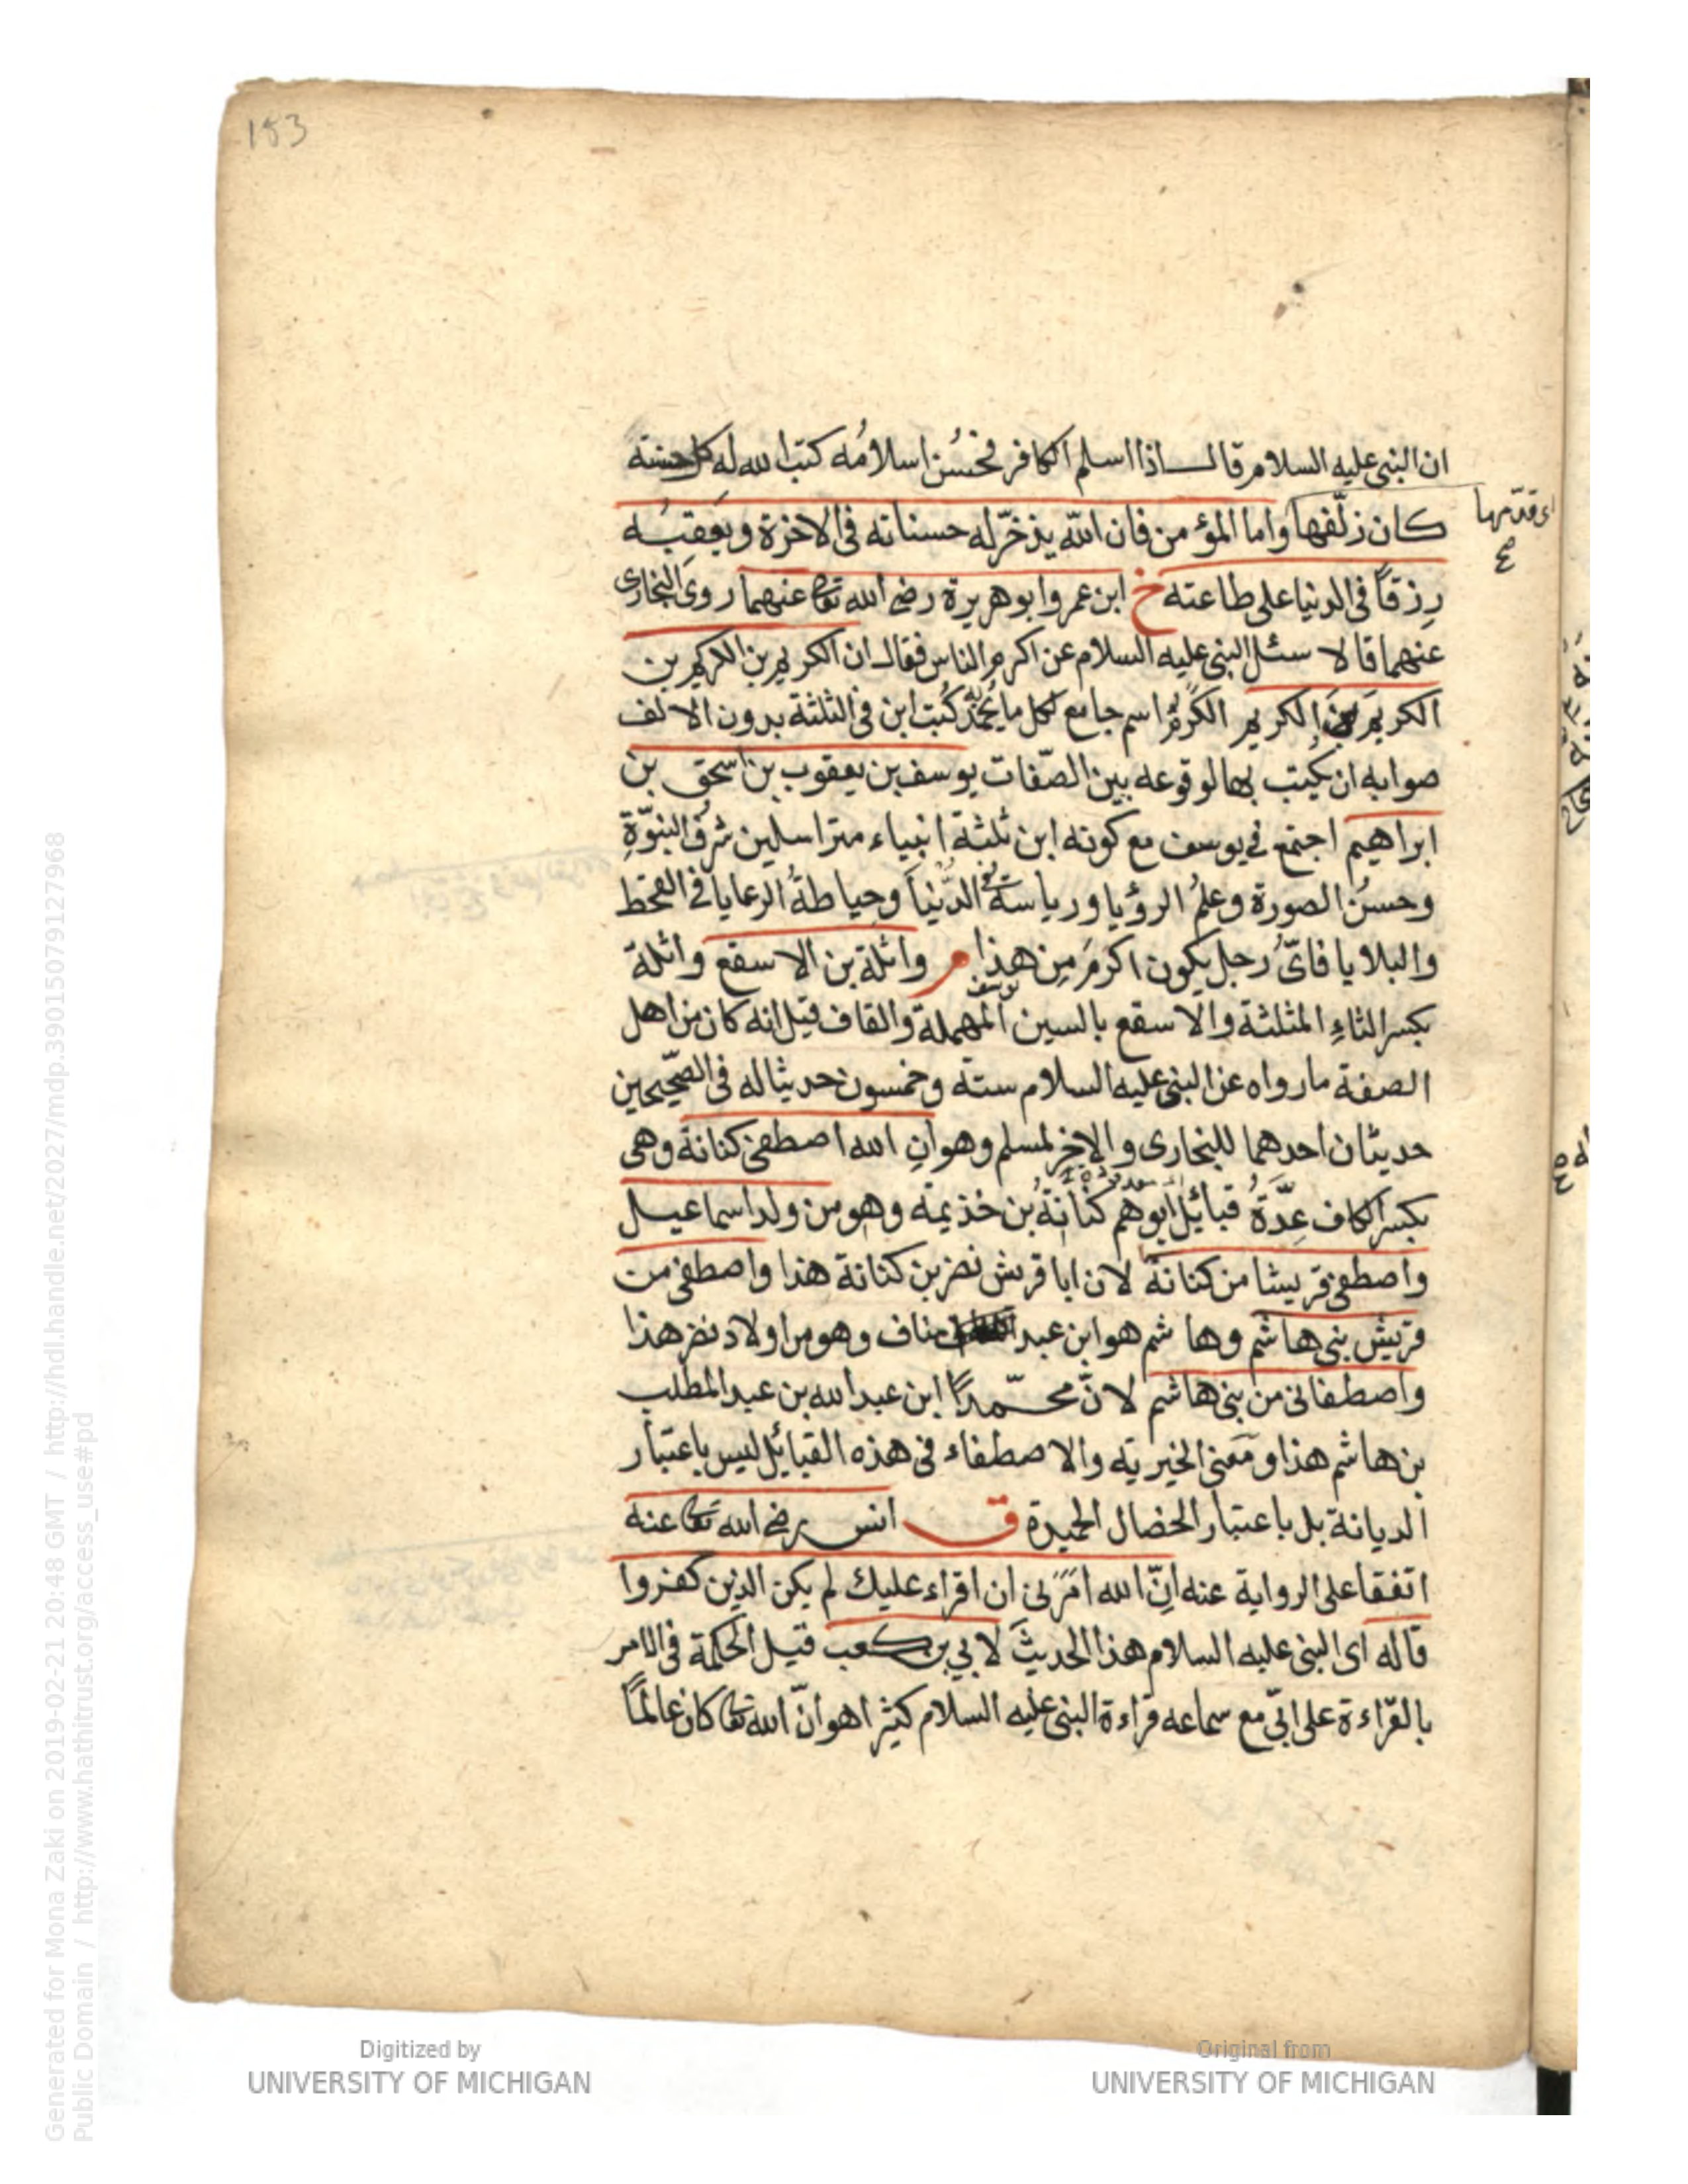 183
ان النبى عليه السلام قال اذا اسلم الكافر فحَسُن اسلامُه كتب الله له كل حسنة
كان زلّفها واما المؤمن فان الله يذخّر له حسناته فى الاخرة ويَعقِبُه
اى قدّمها
رِزقاً فى الدنيا على طاعته خ ابن عمر وابو هريرة رضى الله تعا عنهما روى البخارى
عنهما قالا سئل النبى عليه السلام عن اكرم الناس فقال ان الكريم بن الكريم بن
الكريم بن الكريم الكَرَمُ اسم جامع لكل ما يُحمَد به كُتبت ابن فى الثلثة بدون الالف
صوابه ان يكتب بها لوقوعه بين الصّفات يوسف بن يعقوب بن اسحق بن
ابراهيم اجتمع فى يوسف مع كونه ابن ثلثة انبياء متراسلين شرفُ النبوّةِ
وحسنُ الصورة وعلمُ الرؤيا ورياسةُ الدّنيا وحياطةُ الرعايا فى القحط
والبلايا فاىّ رجل يكون اكرمَ مِن هذا م واثلة بن الاسقع واثلة
يوسف
بكسر الثاءِ المثلثة والاسقع بالسين المهملة والقاف قيل انه كان من اهل
الصفة ما رواه عن النبى عليه السلام ستة وخمسون حديثا له فى الصّحيحين
حديثان احدهما للبخارى والاخِر لمسلم وهو انِ الله اصطفى كنانة وهى
بكسر الكاف عِدّةُ قبائل ابوهم كنانةُ بن خذيمة وهو من ولد اسماعيل
واصطفى قريشا من كنانة لان ابا قريش نضر بن كنانة هذا واصطفى من
قريش بنى هاشم وهاشم هو ابن عبد مناف وهو من اولاد نضر هذا
واصطفانى من بنى هاشم لانّ محمّداً ابن عبد الله بن عبد المطلب
بن هاشم هذا ومَعنى الخيرية والاصطفاء فى هذه القبائل ليس باعتبار
الديانة بل باعتبار الخصال الحميدة ق انس رضى الله تعا عنه
اتفقا على الرواية عنه اِنّ الله امَرَنى ان اقراء عليك لم يكن الذين كفروا
قاله اى النبى عليه السلام هذا الحديثَ لابي بن كعب قيل الحكمة فى الامر
بالقرّاءة على ابىّ مع سماعه قراءة النبى عليه السلام كثيرا هو انّ الله تعا كان عالمًا
Digitized by
UNIVERSITY OF MICHIGAN
Original from
UNIVERSITY OF MICHIGAN
Generated for Mona Zaki on 2019-02-21 20:48 GMT / http://hdl.handle.net/2027/mdp.39015079127968
Public Domain / http://www.hathitrust.org/access_use#pd